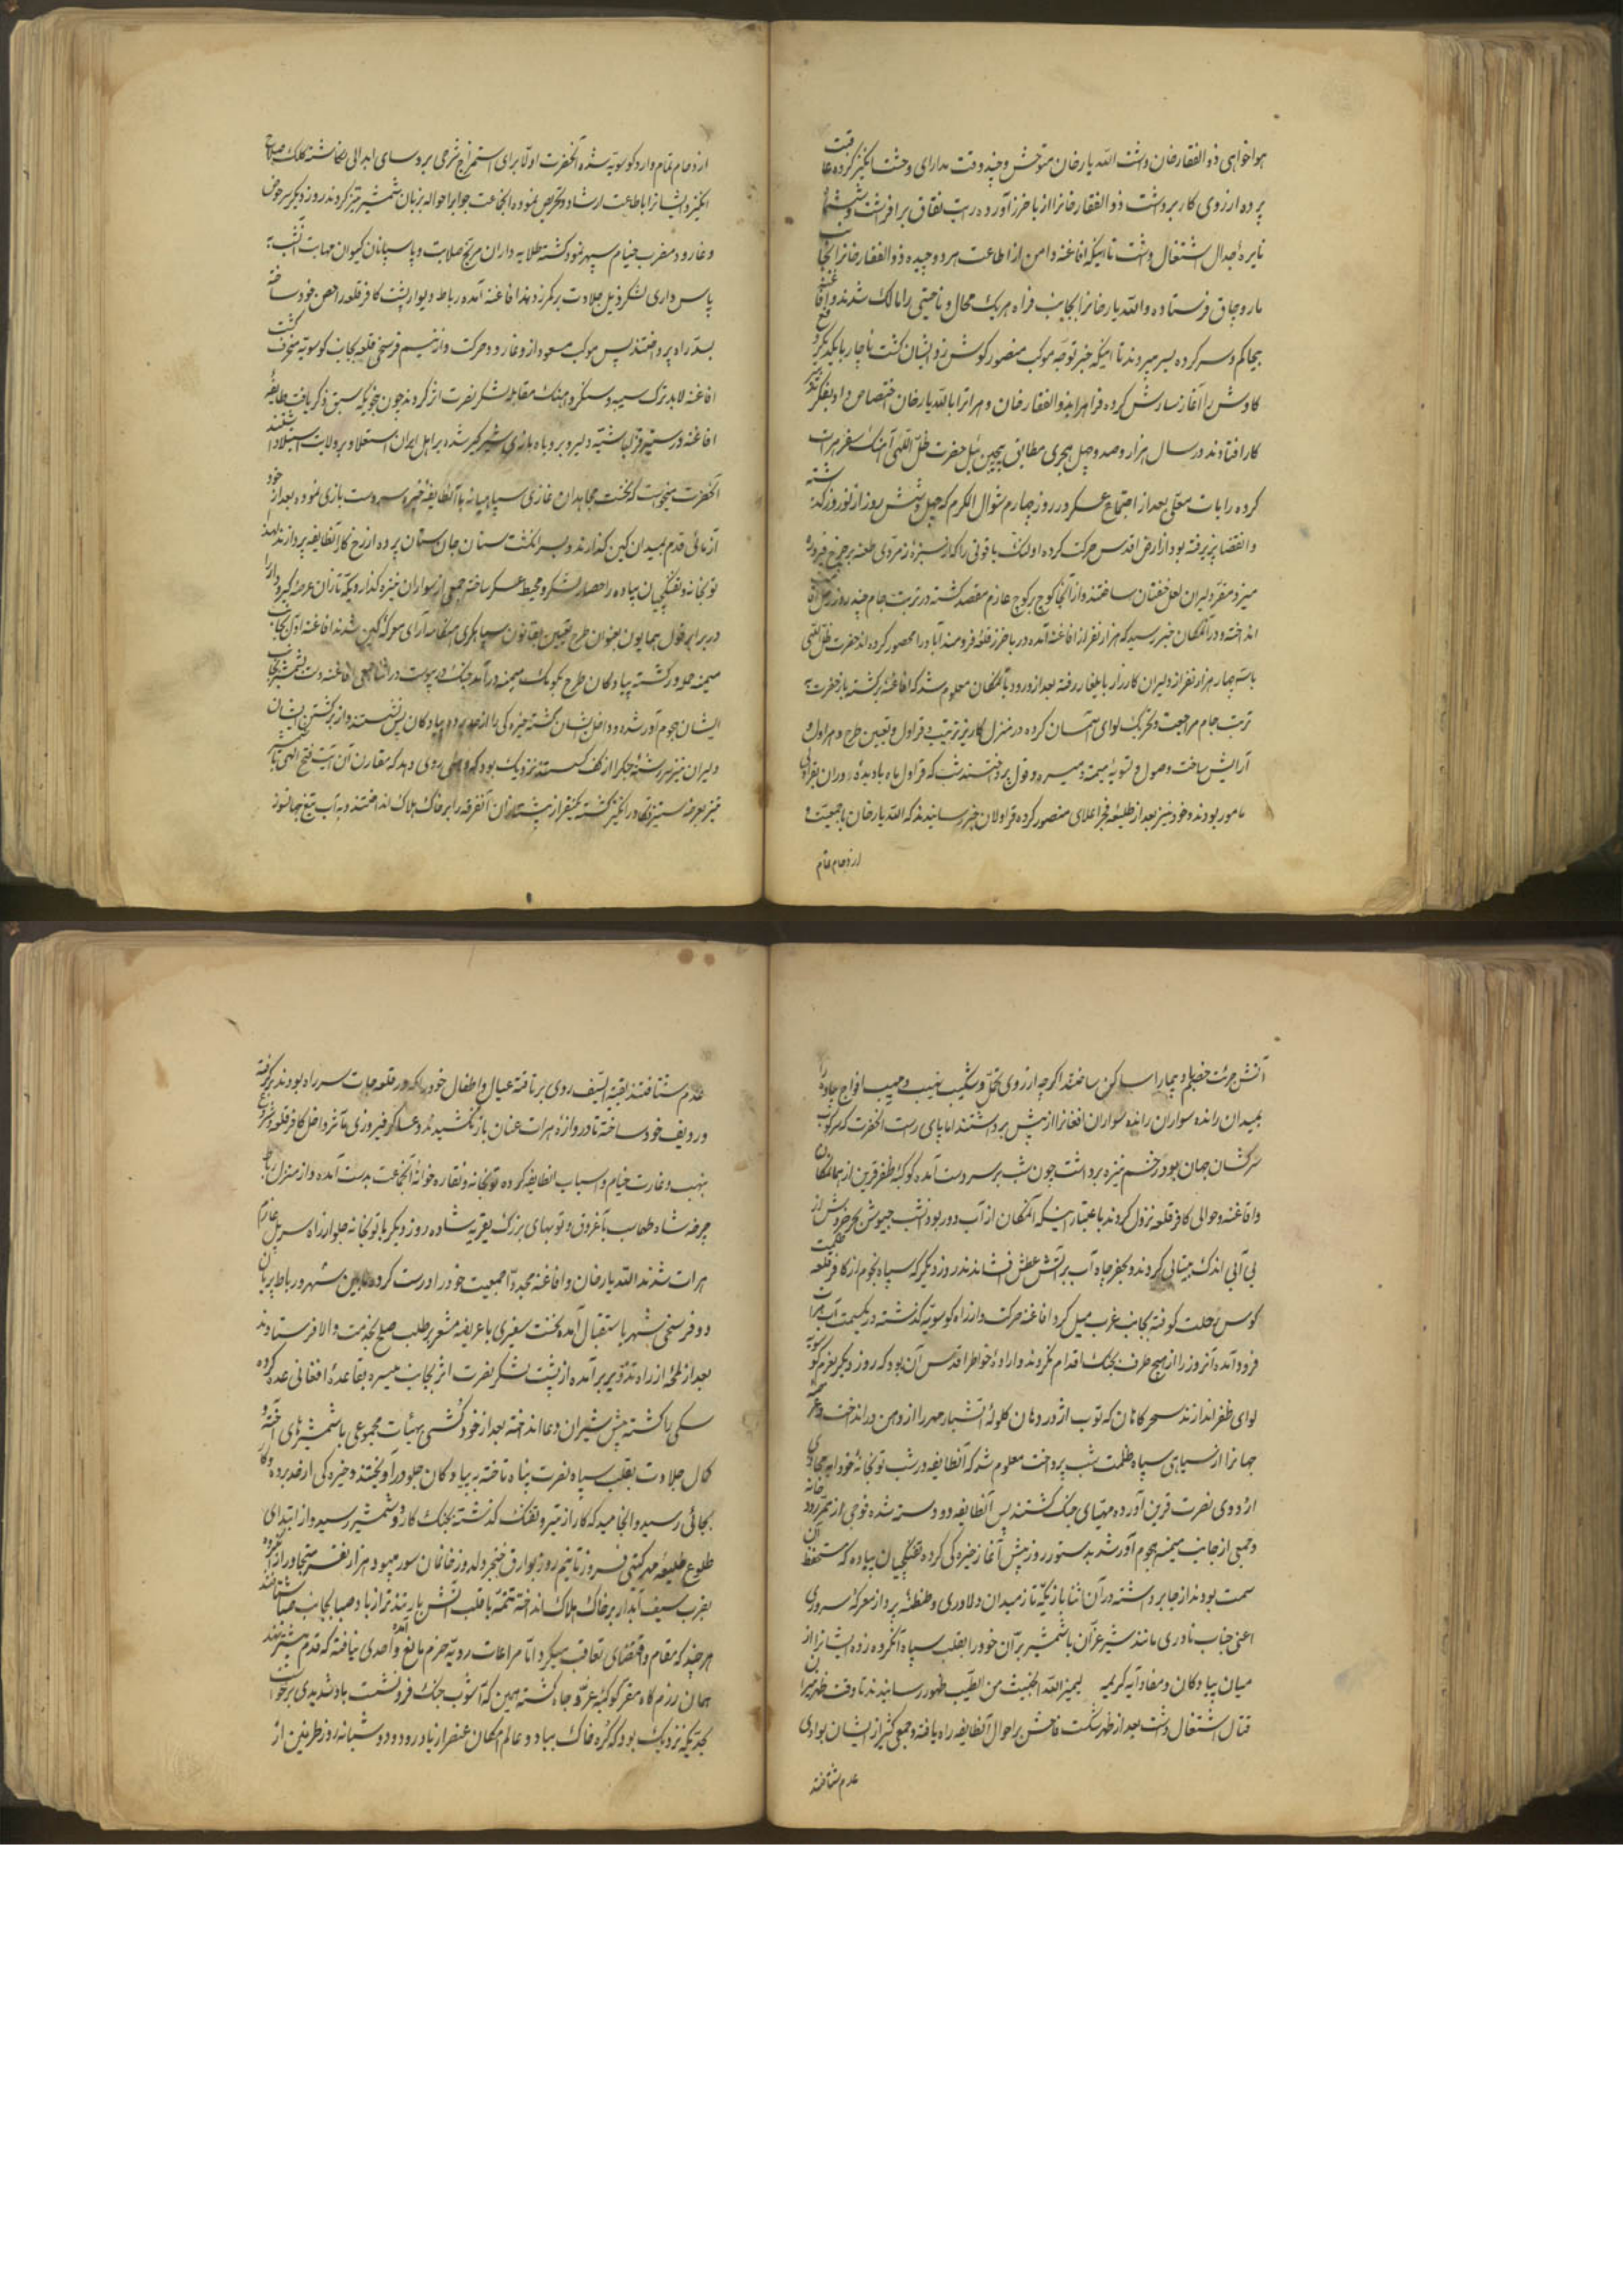 هواخواهی ذو الفقار خان داشت الله یار خان متوحش و چند وقت مدارای وحشت انگیز کرده عاقبت
پرده از روی کار برداشت ذو الفقار خانرا از باخرز آورده رایت نفاق برافراشت و ششماه
نایره جدال اشتغال داشت تا اینکه افاغنه دامن از اطاعت هر دو چیده ذو الفقار خانرا بجانب
ماروچاق فرستاده و الله یار خانرا بجانب فراه هر یک محال و ناحیتی را مالک شدند و افاغنه
بیحاکم و سرکرده بسر میبردند تا اینکه خبر توجه موکب منصور کوش زد ایشان کشت ناچار با یکدیکر دفع
کاوش را آغاز سازش کرده فراه را بذو الفقار خان و هراترا با الله یار خان اختصاص داده بفکر تدبیر
کار افتادند در سال هزار و صد و چهل هجری مطابق پیچین ئیل حضرت ظل اللهی آهنک سفر هرات
کرده رایات معلی بعد از اجتماع عسکر در روز چهارم شوال المکرم که چهل و شش روز از نوروز کذشته
و انقضا پذیرفته بود از ارض اقدس حرکت کرده اولنک یاقوتی را که از سبزه زمردی طعنه بر چرخ فیروزه
میزد مقر دلیران لعل خفتان ساختند و از آنجا کوچ بر کوچ عازم مقصد کشته در تربت جام چند روز رحل اقامت
انداخته و در آنمکان خبر رسید که هزار نفر از افاغنه آمده در باخرز قلعه فرومند آباد را محصور کرده اند حضرت ظل اللهی
با سه چهار هزار نفر از دلیران کارزار بایلغار رفته بعد از ورود بآنمکان معلوم شد که افاغنه برکشته باز حضرت به
تربت جام مراجعت و تحریک لوای آسمان سای کرده در منزل کاریز ترتیب قراول و تعیین طرح و هراول و
آرایش ساخت و صول و تسویه میمنه و میسره و قول پرداختند شب که قراول ماه بادیده دوران بقراولی
مامور بودند و خود نیز بعد از طلیعه فجر اعلای منصور کرده قراولان خبر رسانیدند که الله یار خان با جمعیت و
ازدحام تمام
ازدحام تمام وارد کوسویه شده آنحضرت اولا برای استمزاج شرحی بروسای ابدالی نکاشته کلک صلاح
انکیز و ایشانرا باطاعت ارشاد و تحریص نموده آنجماعت جوابرا حواله بزبان شمشیر تیز کردند روز دیکر سر حوض
و غارود مضرب خیام سپهر نمود کشته طلایه داران مریخ صلابت و پاسبانان کیوان مهابت آنشب به
پاس داری لشکر ذیل جلادت بر کمر زدند افاغنه آمده رباط و دیوار پشت کافر قلعه را حصن خود ساخته
بسد راه پرداختند پس موکب مسعود از وغارود حرکت و از نیم فرسخی قلعه بجانب کوسویه منحرف کشت
افاغنه لابد ترک سیبه و سنکر و آهنک مقابله لشکر نصرت اثر کردند چون بنحویکه سبق ذکر یافت طایفه
افاغنه در ستیز قزلباشیه دلیر و بروباه بازی شیر کیر شده بر اهل ایران استعلا و بر ولایت استیلا داشتند
آنحضرت میخواست که نخست مجاهدان غازی سپاهیانه با آنطایفه خیره سر دست بازی نموده بعد از خود
آزمائی قدم بمیدان کین کذارند و بسر انکشت سنان جان ستان پرده از رخ کار آنطایفه بردارند لهذا
توپخانه و تفنکچیان پیاده را حصار لشکر و محیط عسکر ساخته جمعی از سواران نیزه کذار و یکه تازان عرصه کیر و دار را
در برابر قول همایون بعنوان طرح تعیین بقانون سپاهکری هنکامه آرای معرکه کین شدند افاغنه اول بجانب
میمنه حمله ور کشته پیادکان طرح بکومک میمنه درآمده جنک در پیوست در اثنا جمعی افاغنه دست بشمشیر بجانب
ایشان هجوم آور شده و داخل ایشان کشته خیره کی را از حد برده پیادکان پس نشستند و از برکشتن ایشان
دلیران نیز سررشته جکر از کف کسسته نزدیک بود که وهنی روی دهد که مقارن آن آیت فتح الهی با شمشیر
تیز بعرصه ستیز تکاور انکیز کشته یکنفر از پیشتازان آنفرقه را بر خاک هلاک انداختند و به آب تیغ جهانسوز
آتش جرئت خصم را ساکن ساختند اکرچه از روی تحمل و شکیب نهیب و مهیب افواج چابه را
بمیدان رانده سواران رانده سواران افغانرا از پیش برداشتند اما پای راست آنحضرت که سرکوب
سرکشان جهان بود زخم نیزه برداشت چون شب بر سر دست آمده کوکبه ظفر قرین از همانمکان
و افاغنه در حوالی کافر قلعه نزول کردند باعتبار اینکه آنمکان از آب دور بود آنشب جیوش بحر خروش از
بی آبی اندک بیتابی کردند و بحفر چاه آب بر آتش عطش افشاندند روز دیکر که سپاه نجوم از کافر قلعه ظلمت
کوس رحلت کوفته بجانب غرب میل کرد افاغنه حرکت و از راه کوسویه کذشته در یکسمت آب هرات
فرود آمده آنروز را از هیچ طرف بجنک اقدام نکردند و اراده خاطر اقدس آن بود که روز دیکر بعزم کوسویه
لوای ظفر اندازند سحرکاهان که توپ اژدر دهان کلوله آتشبار مهر را از دهن در انداخت و عرصه
جهانرا از سیاهی سپاه ظلمت شب پرداخت معلوم شد که آنطایفه در شب توپخانه خود را بمحاذی
اردوی نصرت قرین آورده مهیای جنک کشتند پس آنطایفه دو دسته شده فوجی از نهر رودخانه
و جمعی از جانب میمنه هجوم آور شده بدستور روز پیش آغاز خیره کی کرده تفنکچیان پیاده که مستحفظ آن
سمت بودند از جا برداشته در آن اثنا باز یکه تاز میدان دلاوری و طنطنه پرداز معرکه سروری
اعنی جناب نادری مانند شیر غران با شمشیر بران خود را بقلب سپاه آنکروه زده ایشانرا از
میان پیادکان و مفاد آیه کریمه لیمیز الله الخبیث من الطیب بظهور رسانیدند تا وقت ظهر میزان
قتال اشتغال داشت بعد از ظهر شکست فاحش بر احوال آنطایفه راه یافته و جمعی کثیر از ایشان بوادی
عدم شتافتند
عدم شتافتند بقیة السیف روی بر تافته عیال و اطفال خود را که در قلعه جات سر راه بودند برکرفته
و ردیف خود ساخته تا دروازه هرات عنان باز نکشیدند و عساکر فیروزی مآثر داخل کافر قلعه و شروع
بنهب و غارت خیام و اسباب آنطایفه کرده توپخانه و نقاره خوانه آنجماعت بدست آمده و از منزل رباط
چرخه شاه طهماسب با غروق و توپهای بزرک بقریه شاده روز دیکر با توپخانه جلو از راه سرپل عازم
هرات شدند الله یار خان و افاغنه مجددا جمعیت خود را درست کرده مابین شهر و رباط پریان
دو فرسخی شهر باستقبال آمده نخست سفیری با عریضه مشعر بر طلب صلح بخدمت والا فرستادند
بعد از لمحه از راه تزویر برآمده از پشت لشکر نصرت اثر بجانب میسره بقاعده افغانی عدد کرده
سکی را کشته پیش شیران وغا انداخته بعد از خود کشی بهیأت مجموعی با شمشیرهای آخته و
کمال جلادت بقلب سپاه نصرت پناه تاخته به پیادکان جلو درآویختند و خیره کی از حد برده و کار
بجائی رسید و انجامید که کار از تیر و تفنک کذشته بجنک کارد و شمشیر رسید و از ابتدای
طلوع طلیعه مهر کیتی فروز تا نیم روز بوارق خنجر دلدوز خانمان سوز میبود هزار نفر متجاوز از آنکروه
بضرب سیف آبدار بر خاک هلاک انداخته تتمه با قلب آتش بار تندتر از باد صبا بجانب شتافتند
هرچند که مقام اقتضای تعاقب میکرد اما مراعات رویه حزم مانع آمده واحدی نیافته که قدم پیشتر نهند
همان رزم کاه مقر کوکبه عز و جاه کشته همین که آشوب جنک فرو نشست باد شدیدی برخواست
بحدیکه نزدیک بود که کره خاک بباد و عالم امکان عنصر از باد رود و دو شبانه روز طرفین از